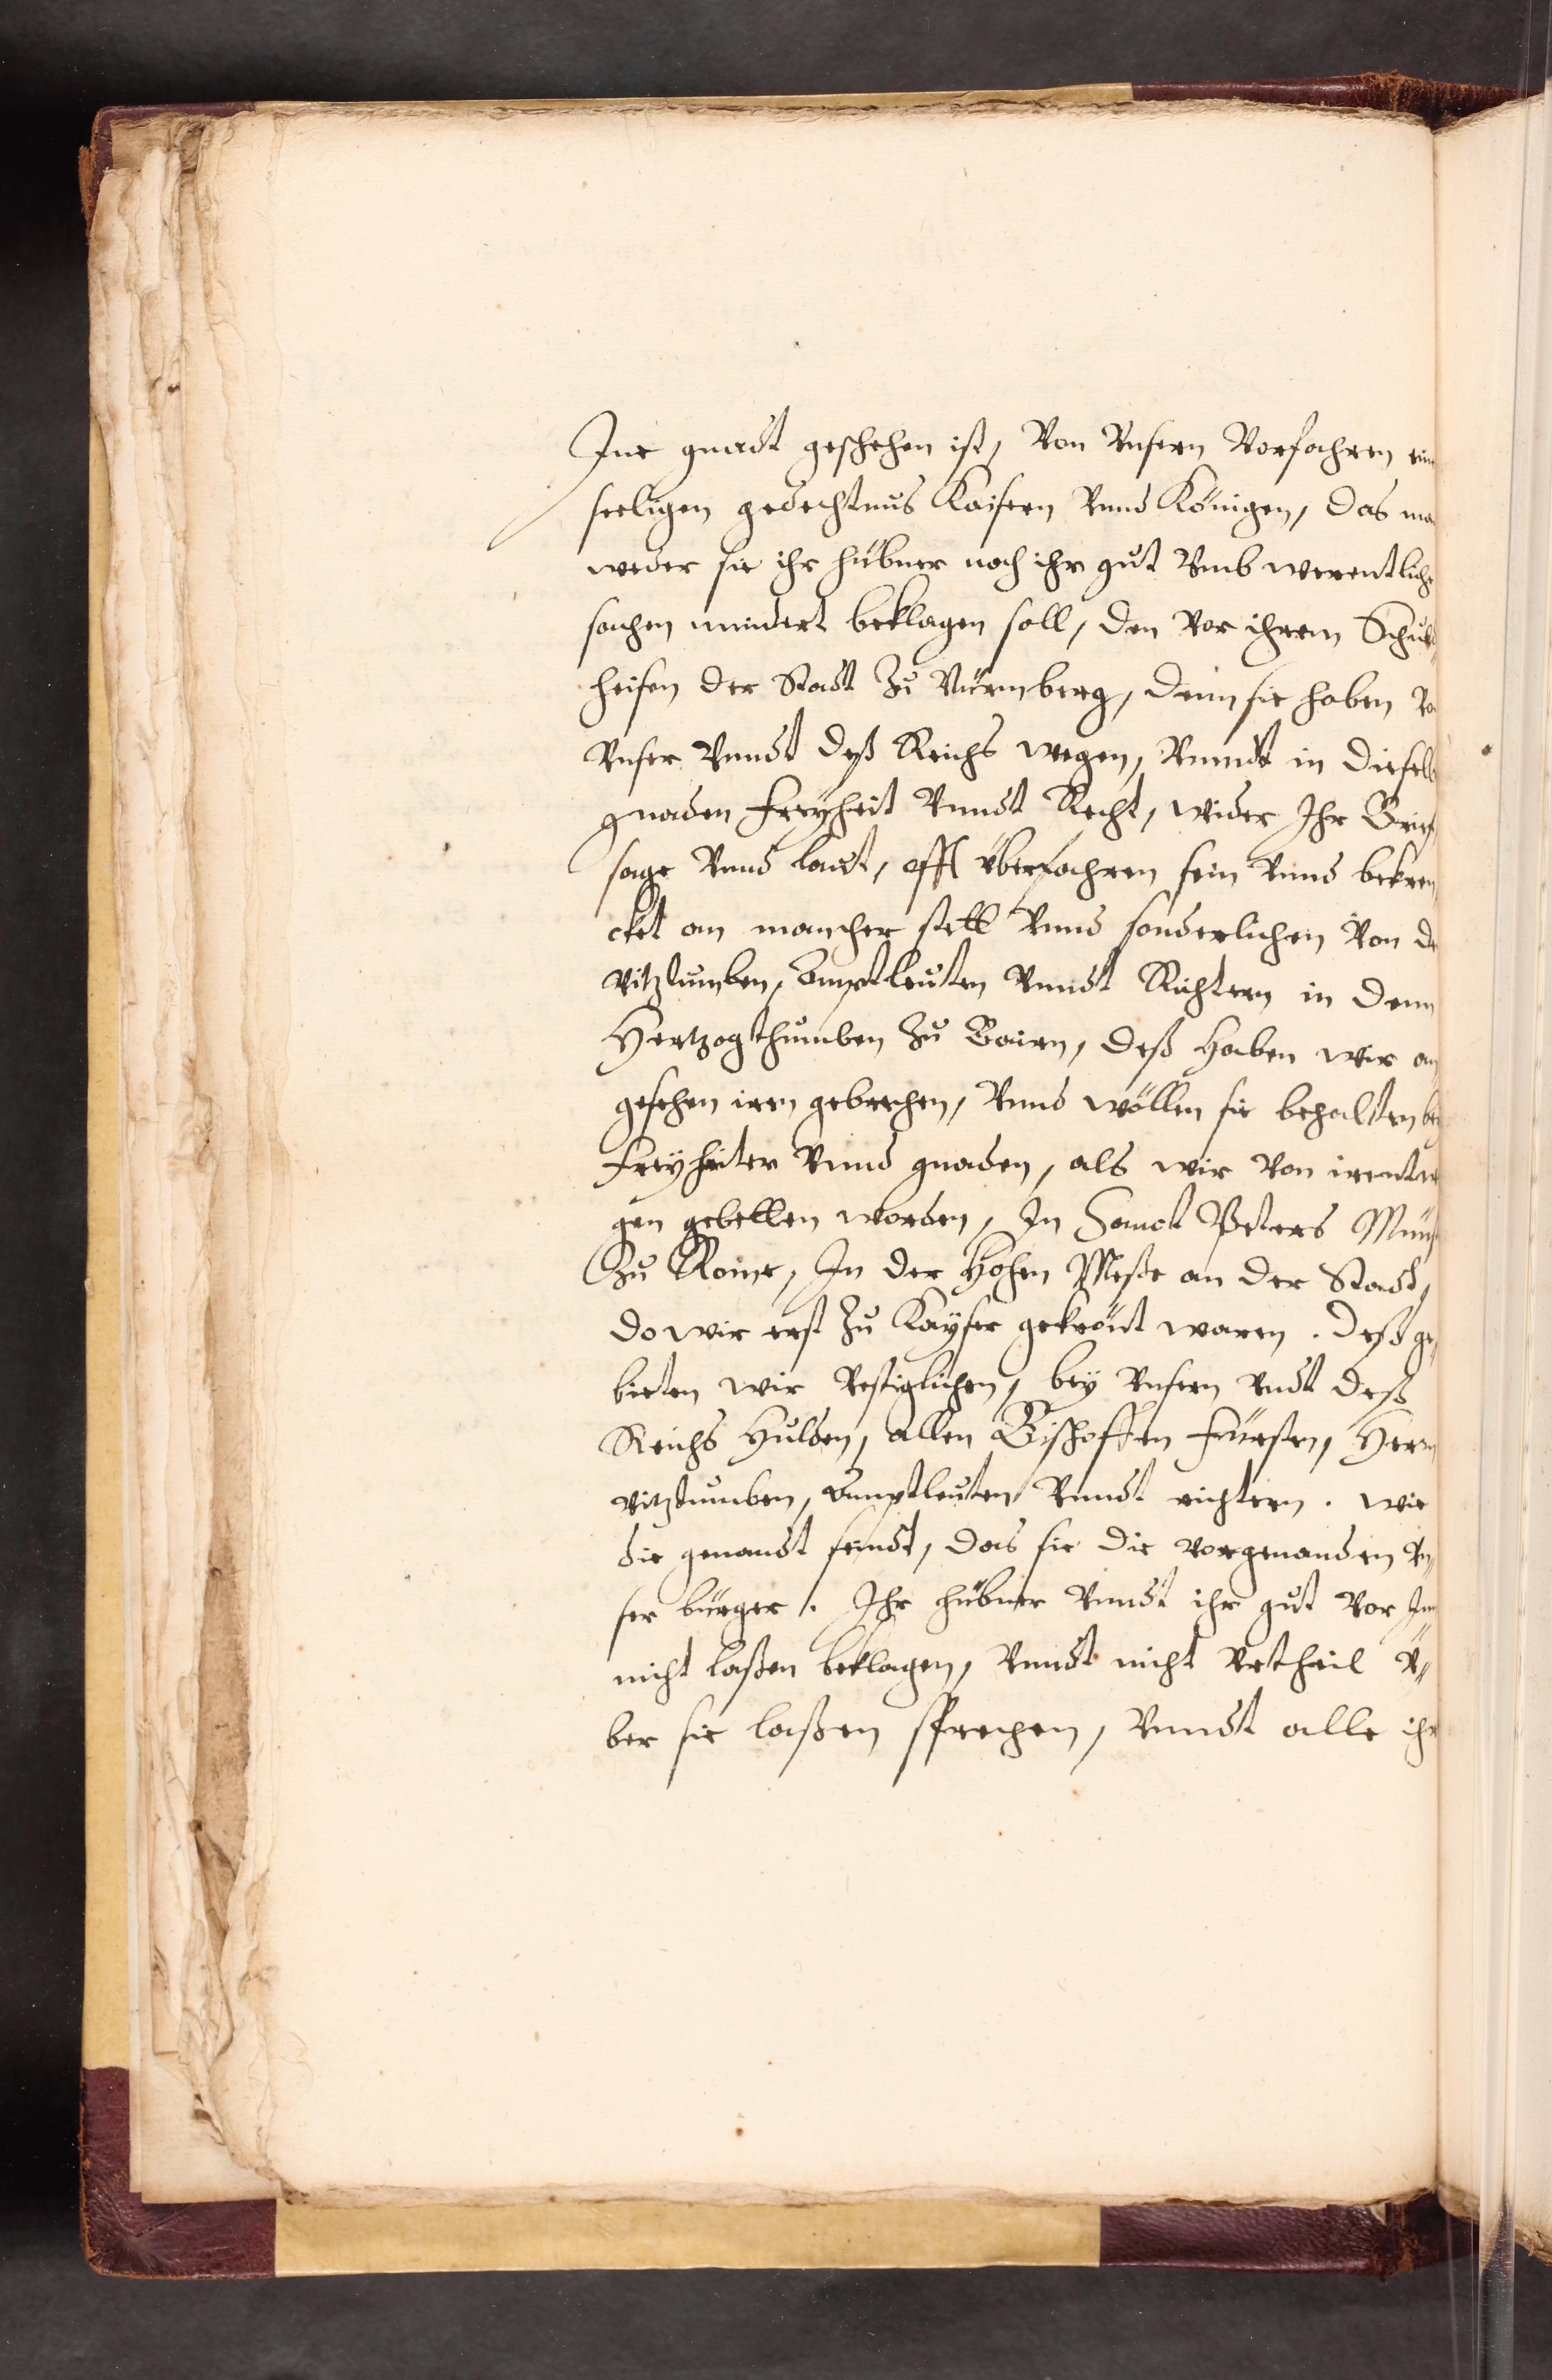 Ine gnadt geschehen ist, Von Vnsern Vorfahren
seeligen gedechtnus Kaisern Vnnd Königen, das ma
weder sie ihr hübner noch ihr gut Vmb werentliche
sachen nindert beklagen soll, den Vor ihrem Schul
heisen der Stadt zu Nürmberg, denn sie haben Vo
Vnser Vnndt deß Reichs wegen, Vnnndt in dieselb
gnaden freyheit Vnndt Recht, wider Ihr Brieff
sage Vnnd laut, offt überfahren sein Vnnd bekren
cket an mancher stett Vnnd sonderlichen Von de
Vitztumben, Amptleuten Vnndt Richtern in denn
Hertzogthumben zu Bairn, deß haben wir an
gesehen iren gebrechen, Vnnd wöllen sie behalten bey
freyheiten Vnnd gnaden, als wir Von
gen gebetten worden, In Sanct Peters Müns
zu Rome, In der hohen Meße an der Stadt,
do wir erst zu Kayser gekrönt waren. deß ge,,
bieten wir Vestiglichen, bey Vnsern Vndt deß
Reichs Hulden, allen Bischoffen fürsten, Herrn
Vitztumben, Amptleuten Vnndt richtern. wie
die genandt seindt, das sie die Vorgenanden Vn,,
ser bürger. Ihr hübner Vnndt ihr gut Vor Inn
nicht laßen beklagen, Vnndt nicht Vrtheil V,,
ber sie laßen sprechen, Vnndt alle ihr